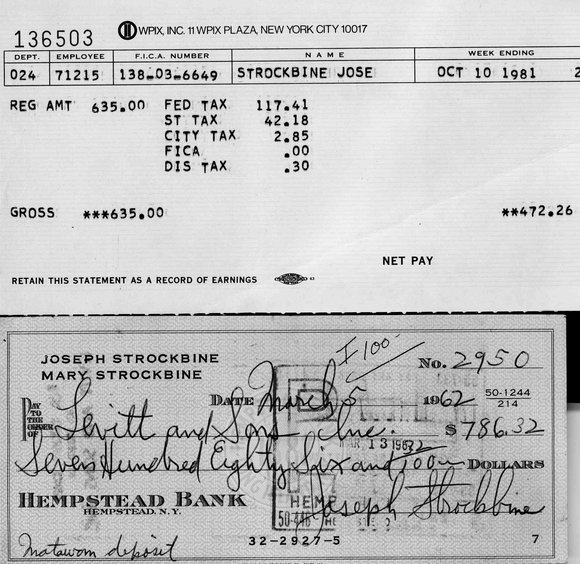 136503 WPIX, INC. 11 WPIX PLAZA, NEW YORK CITY 10017
DEPT. EMPLOYEE F.I.C.A. NUMBER NAME WEEK ENDING
024 71215 138-03-6649 STROCKBINE JOSE OCT 10 1981 2
REG AMT 635.00 FED TAX 117.41
ST TAX 42.18
CITY TAX 2.85
FICA .00
DIS TAX .30
GROSS ***635.00 **472.26
NET PAY
RETAIN THIS STATEMENT AS A RECORD OF EARNINGS
I 100-
JOSEPH STROCKBINE No. 2950
MARY STROCKBINE
DATE March 5 1962 50-1244
214
PAY TO THE ORDER OF Levitt and Sons Inc. $ 786.32
13 1962
Seven Hundred Eighty Six and 32/100 DOLLARS
HEMPSTEAD BANK Joseph Strockbine
HEMPSTEAD, N.Y.
HEMP
32-2927-5 7
Matawan deposit